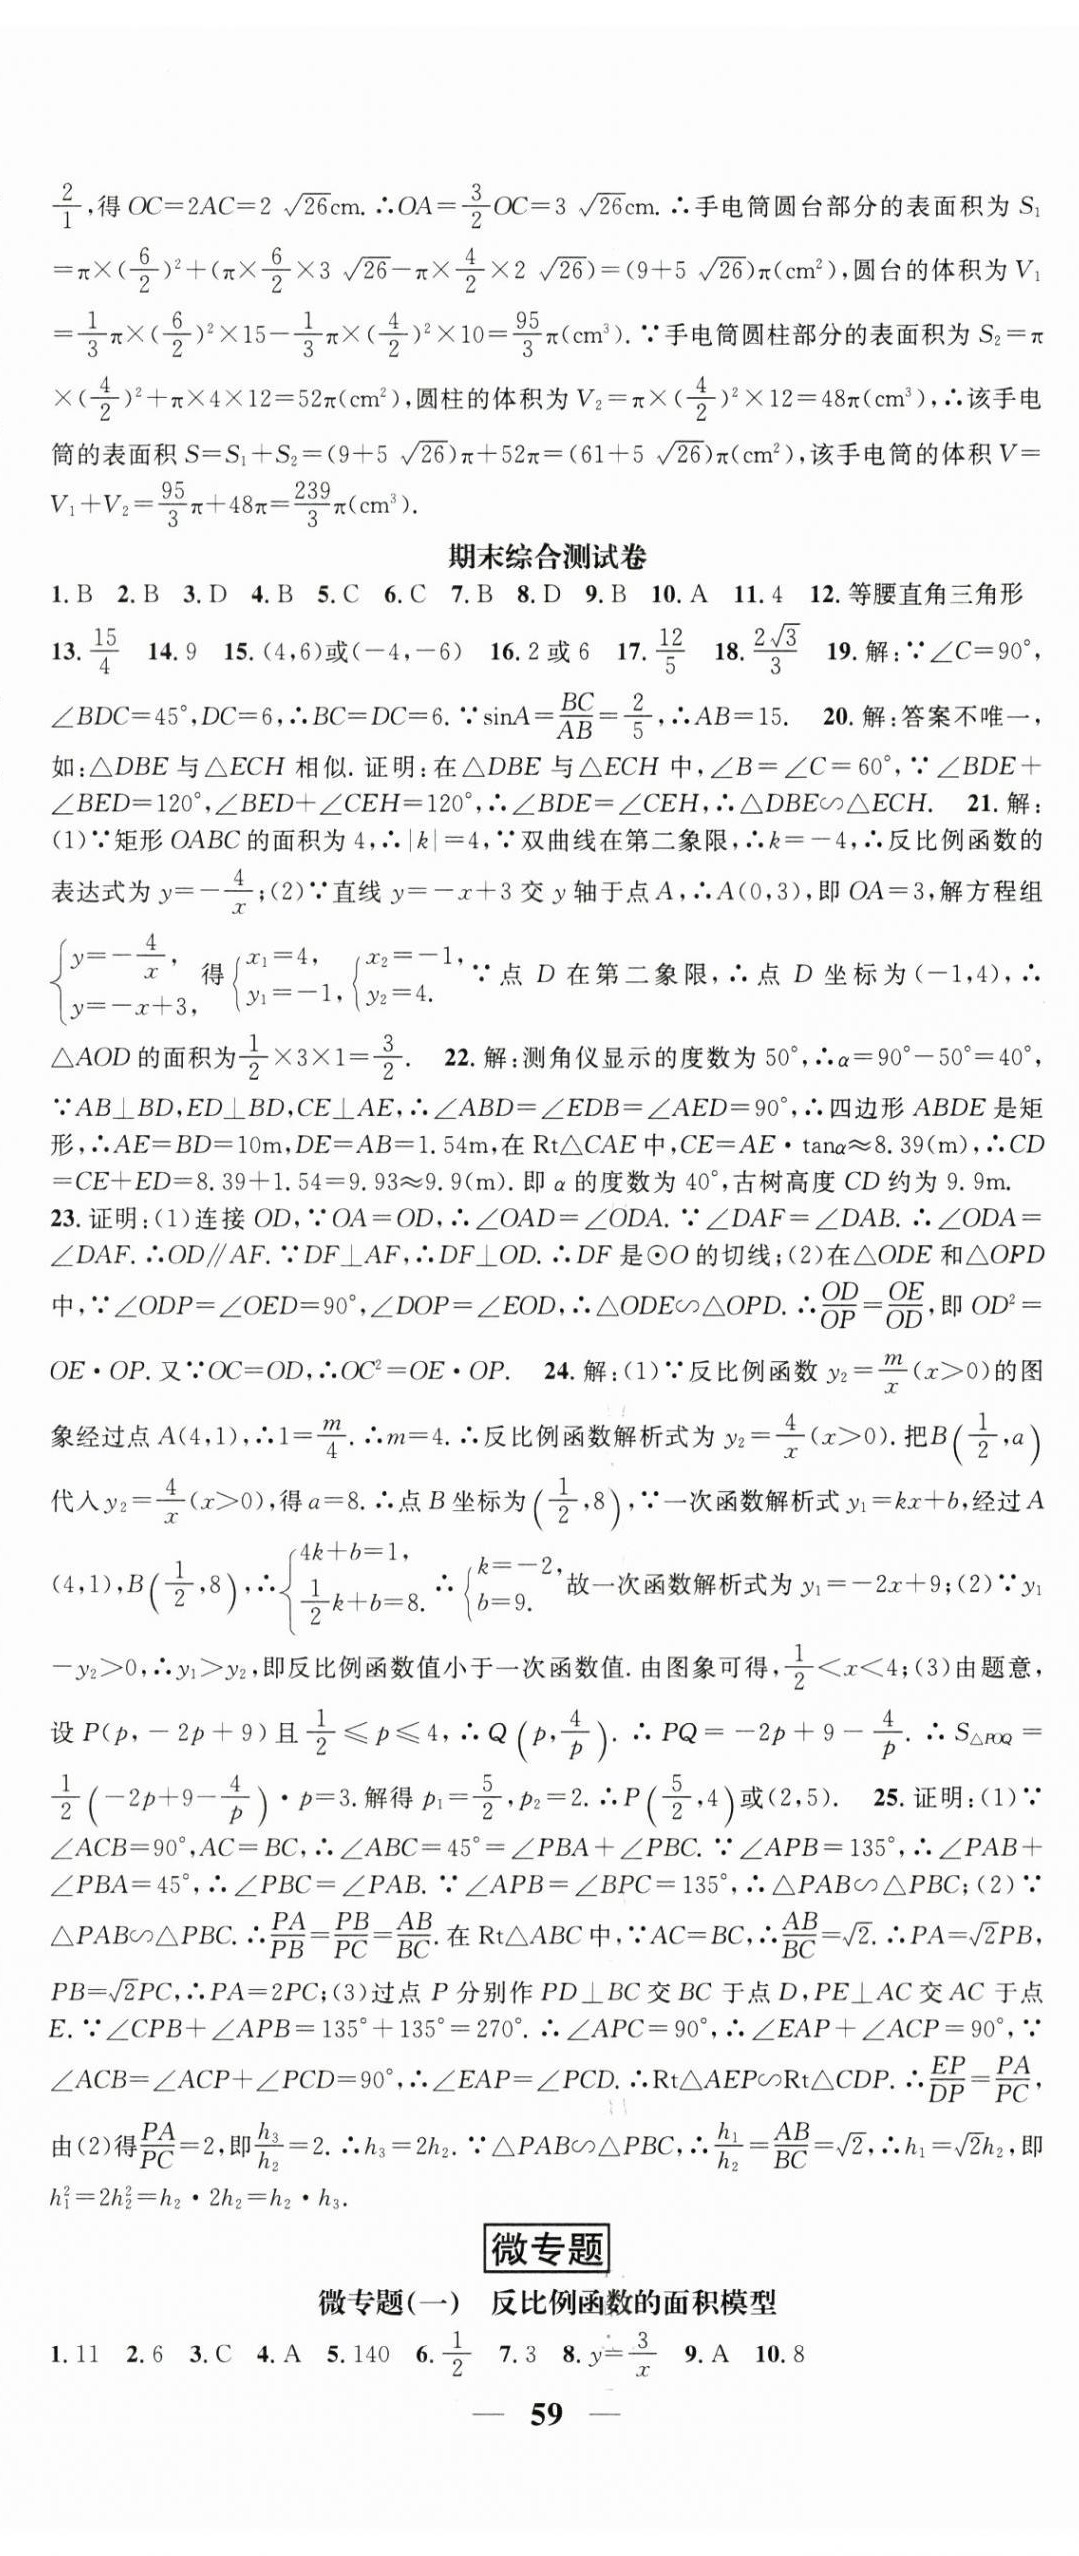 2/1,得 OC=2AC=2 √26cm. ∴OA=3/2OC=3 √26cm. ∴手电筒圆台部分的表面积为 S₁
=π×(6/2)²+(π×6/2×3 √26-π×4/2×2 √26)=(9+5 √26)π(cm²),圆台的体积为 V₁
=1/3π×(6/2)²×15-1/3π×(4/2)²×10=95/3π(cm³). ∵手电筒圆柱部分的表面积为 S₂=π
×(4/2)²+π×4×12=52π(cm²),圆柱的体积为 V₂=π×(4/2)²×12=48π(cm³),∴该手电
筒的表面积 S=S₁+S₂=(9+5 √26)π+52π=(61+5 √26)π(cm²),该手电筒的体积 V=
V₁+V₂=95/3π+48π=239/3π(cm³).
期末综合测试卷
1. B 2. B 3. D 4. B 5. C 6. C 7. B 8. D 9. B 10. A 11. 4 12. 等腰直角三角形
13. 15/4 14. 9 15. (4,6)或(-4,-6) 16. 2 或 6 17. 12/5 18. 2√3/3 19. 解:∵∠C=90°,
∠BDC=45°,DC=6,∴BC=DC=6. ∵sinA=BC/AB=2/5,∴AB=15. 20. 解:答案不唯一,
如:△DBE 与△ECH 相似. 证明:在△DBE 与△ECH 中,∠B=∠C=60°,∵∠BDE+
∠BED=120°,∠BED+∠CEH=120°,∴∠BDE=∠CEH,∴△DBE∽△ECH. 21. 解:
(1)∵矩形 OABC 的面积为 4,∴|k|=4,∵双曲线在第二象限,∴k=-4,∴反比例函数的
表达式为 y=-4/x;(2)∵直线 y=-x+3 交 y 轴于点 A,∴A(0,3),即 OA=3,解方程组
{y=-4/x, y=-x+3, 得{x₁=4, y₁=-1, {x₂=-1, y₂=4. ∵点 D 在第二象限,∴点 D 坐标为(-1,4),∴
△AOD 的面积为1/2×3×1=3/2. 22. 解:测角仪显示的度数为 50°,∴α=90°-50°=40°,
∵AB⊥BD,ED⊥BD,CE⊥AE,∴∠ABD=∠EDB=∠AED=90°,∴四边形 ABDE 是矩
形,∴AE=BD=10m,DE=AB=1.54m,在 Rt△CAE 中,CE=AE·tanα≈8.39(m),∴CD
=CE+ED=8.39+1.54=9.93≈9.9(m). 即 α 的度数为 40°,古树高度 CD 约为 9.9m.
23. 证明:(1)连接 OD,∵OA=OD,∴∠OAD=∠ODA. ∵∠DAF=∠DAB. ∴∠ODA=
∠DAF. ∴OD∥AF. ∵DF⊥AF,∴DF⊥OD. ∴DF 是⊙O 的切线;(2)在△ODE 和△OPD
中,∵∠ODP=∠OED=90°,∠DOP=∠EOD,∴△ODE∽△OPD. ∴OD/OP=OE/OD,即 OD²=
OE·OP. 又∵OC=OD,∴OC²=OE·OP. 24. 解:(1)∵反比例函数 y₂=m/x(x>0)的图
象经过点 A(4,1),∴1=m/4. ∴m=4. ∴反比例函数解析式为 y₂=4/x(x>0). 把B(1/2,a)
代入 y₂=4/x(x>0),得 a=8. ∴点 B 坐标为(1/2,8),∵一次函数解析式 y₁=kx+b,经过 A
(4,1),B(1/2,8),∴{4k+b=1, 1/2k+b=8. ∴{k=-2, b=9. 故一次函数解析式为 y₁=-2x+9;(2)∵y₁
-y₂>0,∴y₁>y₂,即反比例函数值小于一次函数值. 由图象可得,1/2<x<4;(3)由题意,
设 P(p,-2p+9)且 1/2≤p≤4,∴Q(p,4/p). ∴PQ=-2p+9-4/p. ∴S△POQ=
1/2(-2p+9-4/p)·p=3. 解得 p₁=5/2,p₂=2. ∴P(5/2,4)或(2,5). 25. 证明:(1)∵
∠ACB=90°,AC=BC,∴∠ABC=45°=∠PBA+∠PBC. ∵∠APB=135°,∴∠PAB+
∠PBA=45°,∴∠PBC=∠PAB. ∵∠APB=∠BPC=135°,∴△PAB∽△PBC;(2)∵
△PAB∽△PBC. ∴PA/PB=PB/PC=AB/BC. 在 Rt△ABC 中,∵AC=BC,∴AB/BC=√2. ∴PA=√2PB,
PB=√2PC,∴PA=2PC;(3)过点 P 分别作 PD⊥BC 交 BC 于点 D,PE⊥AC 交 AC 于点
E. ∵∠CPB+∠APB=135°+135°=270°. ∴∠APC=90°,∴∠EAP+∠ACP=90°,∵
∠ACB=∠ACP+∠PCD=90°,∴∠EAP=∠PCD. ∴Rt△AEP∽Rt△CDP. ∴EP/DP=PA/PC,
由(2)得PA/PC=2,即h₃/h₂=2. ∴h₃=2h₂. ∵△PAB∽△PBC,∴h₁/h₂=AB/BC=√2,∴h₁=√2h₂,即
h₁²=2h₂²=h₂·2h₂=h₂·h₃.
微专题
微专题(一) 反比例函数的面积模型
1. 11 2. 6 3. C 4. A 5. 140 6. 1/2 7. 3 8. y=3/x 9. A 10. 8
— 59 —